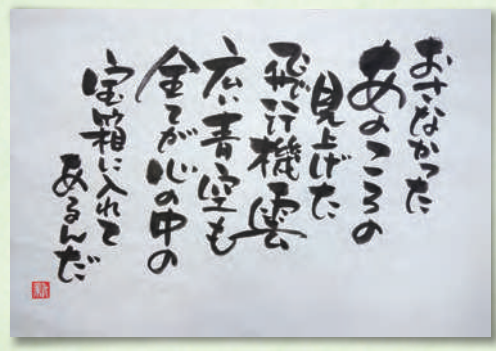 おさなかった
あのころの
見上げた
飛行機雲
広い青空も
全てが心の中の
宝箱に入れて
あるんだ